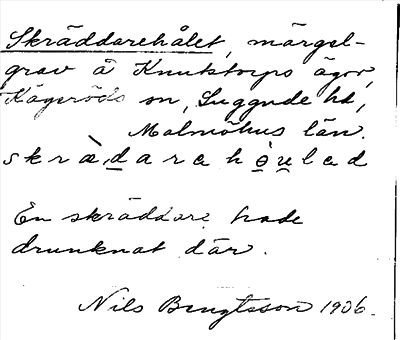 Skräddarehålet, märgel-
grav å Knutstorps ägor,
Kågeröds sn, Luggude hd,
Malmöhus län.
skrædarahøu̯led
En skräddare hade
drunknat där.
Nils Bengtsson 1906.